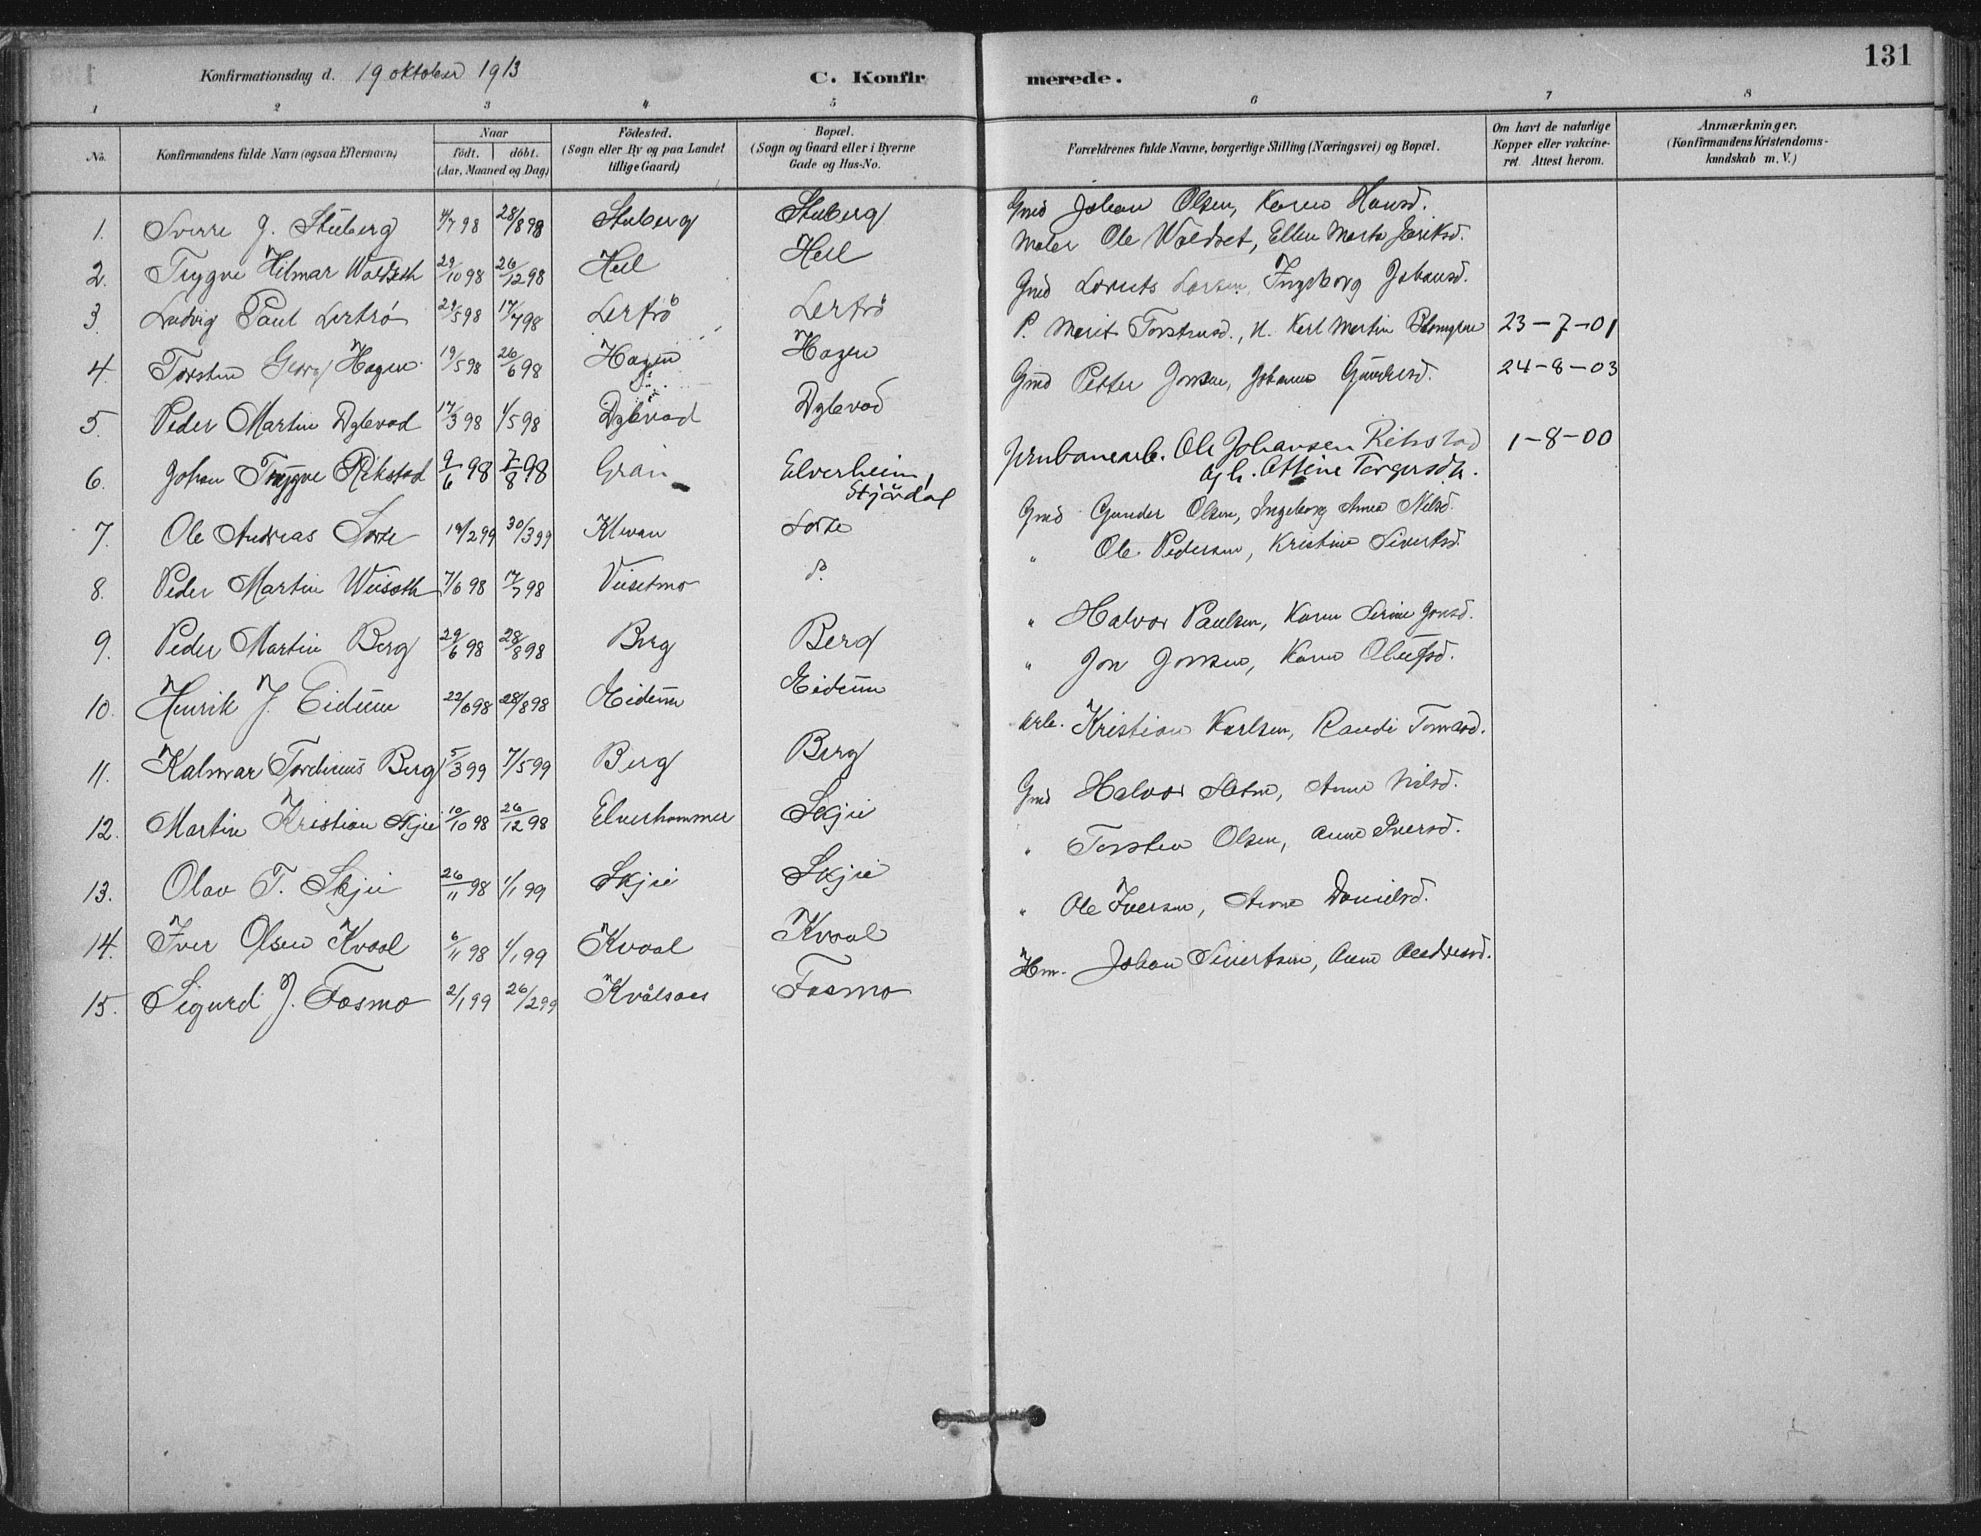 Konfirmationsdag d. 19 oktober 1913 C. Konfirmerede. 131
1 2 3 4 5 6 7 8
No. Konfirmandens fulde Navn (ogsaa Efternavn) Naar födt. döbt. (Aar, Maaned og Dag) Födested. (Sogn eller By og paa Landet tillige Gaard) Bopæl. (Sogn og Gaard eller i Byerne Gade og Hus-No. Forældrenes fulde Navne, borgerlige Stilling (Næringsvei) og Bopæl. Om havt de naturlige Kopper eller vakcineret. Attest herom. Anmærkninger. (Konfirmandens Kristendomskundskab m. V.)
1. Sverre J. Stuberg 4/7 98 28/8 98 Stuberg Stuberg Gmd Johan Olsen, Karen Hansd.
2. Trygve Hilmar Woldseth 29/10 98 26/12 98 Hell Hell Maler Ole Woldset, Ellen Marta Jæriksd.
3. Ludvig Paul Lerfrö 29/5 98 17/7 98 Lerfrö Lerfrö Gmd Lornts Larsen, Ingeborg Johansd.
4. Torsten Georg Hagen 19/5 98 26/6 98 Hagen Hagen P. Marit Torstensd., U. Karl Martin Blomgren 23-7-01
5. Peder Martin Dylevad 17/3 98 1/5 98 Dylevad Dylevad Gmd Petter Jonsen, Johanna Gundersd. 24-8-03
6. Johan Trygve Rikstad 9/6 98 7/8 98 Gran Elverheim, Stjørdal Jernbanearb. Ole Johansen Rikstad og h. Ottine Torgersdtr. 1-8-00
7. Ole Andreas Sorte 19/2 99 30/3 99 Klevan Sorte Gmd Gunder Olsen, Ingeborg Anna Nilsd.
8. Peder Martin Weiseth 7/6 98 17/7 98 Veisetmo do. " Ole Pedersen, Kristine Sivertsd.
9. Peder Martin Berg 29/6 98 28/8 98 Berg Berg " Halvor Paulsen, Karen Serine Jonsd.
10. Henrik J. Eidum 22/6 98 28/8 98 Eidum Eidum " Jon Jonsen, Karen Olufsd.
11. Kalmar Tordinius Berg 5/3 99 7/5 99 Berg Berg Arb. Kristian Karlsen, Randi Tomasd.
12. Martin Kristian Skjei 10/10 98 26/12 98 Elverhammer Skjei Gmd Halvor, Anne Nilsd.
13. Olav T. Skjei 26/11 98 1/1 99 Skjei Skjei " Torsten Olsen, Anne Iversd.
14. Iver Olsen Kvaal 6/11 98 1/1 99 Kvaal Kvaal " Ole Iversen, Anne Danielsd.
15. Sigurd J. Fosmo 2/1 99 26/2 99 Kvålsaas Fosmo Hm. Johan Sivertsen, Anne Andreasd.